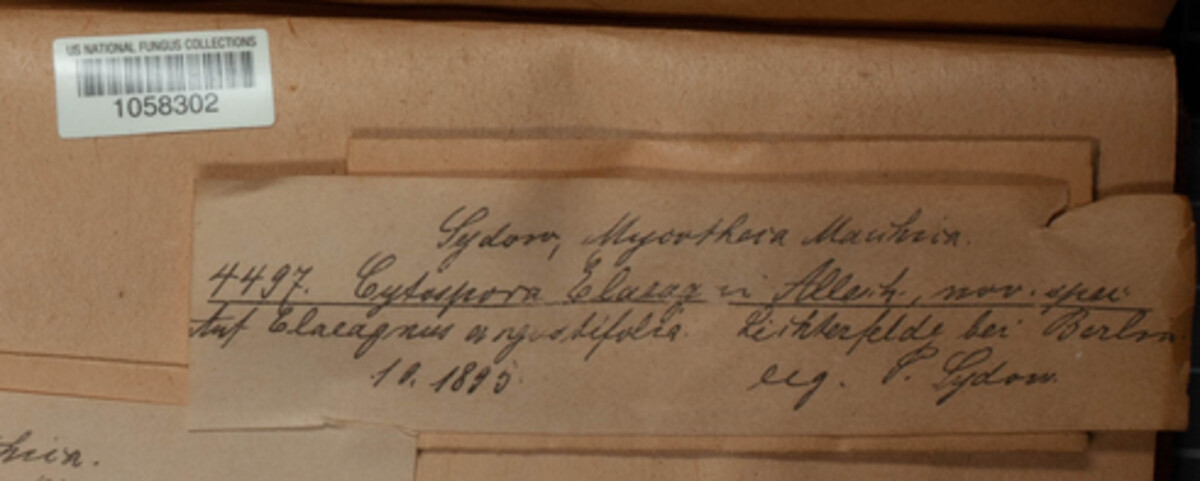 US NATIONAL FUNGUS COLLECTIONS
1058302
Sydow, Mycotheca Marchica.
4497. Cytospora Elaeagni Allesch., nov. spec.
Auf Elaeagnus angustifolia. Lichterfelde bei Berlin
10. 1895. leg. P. Sydow.